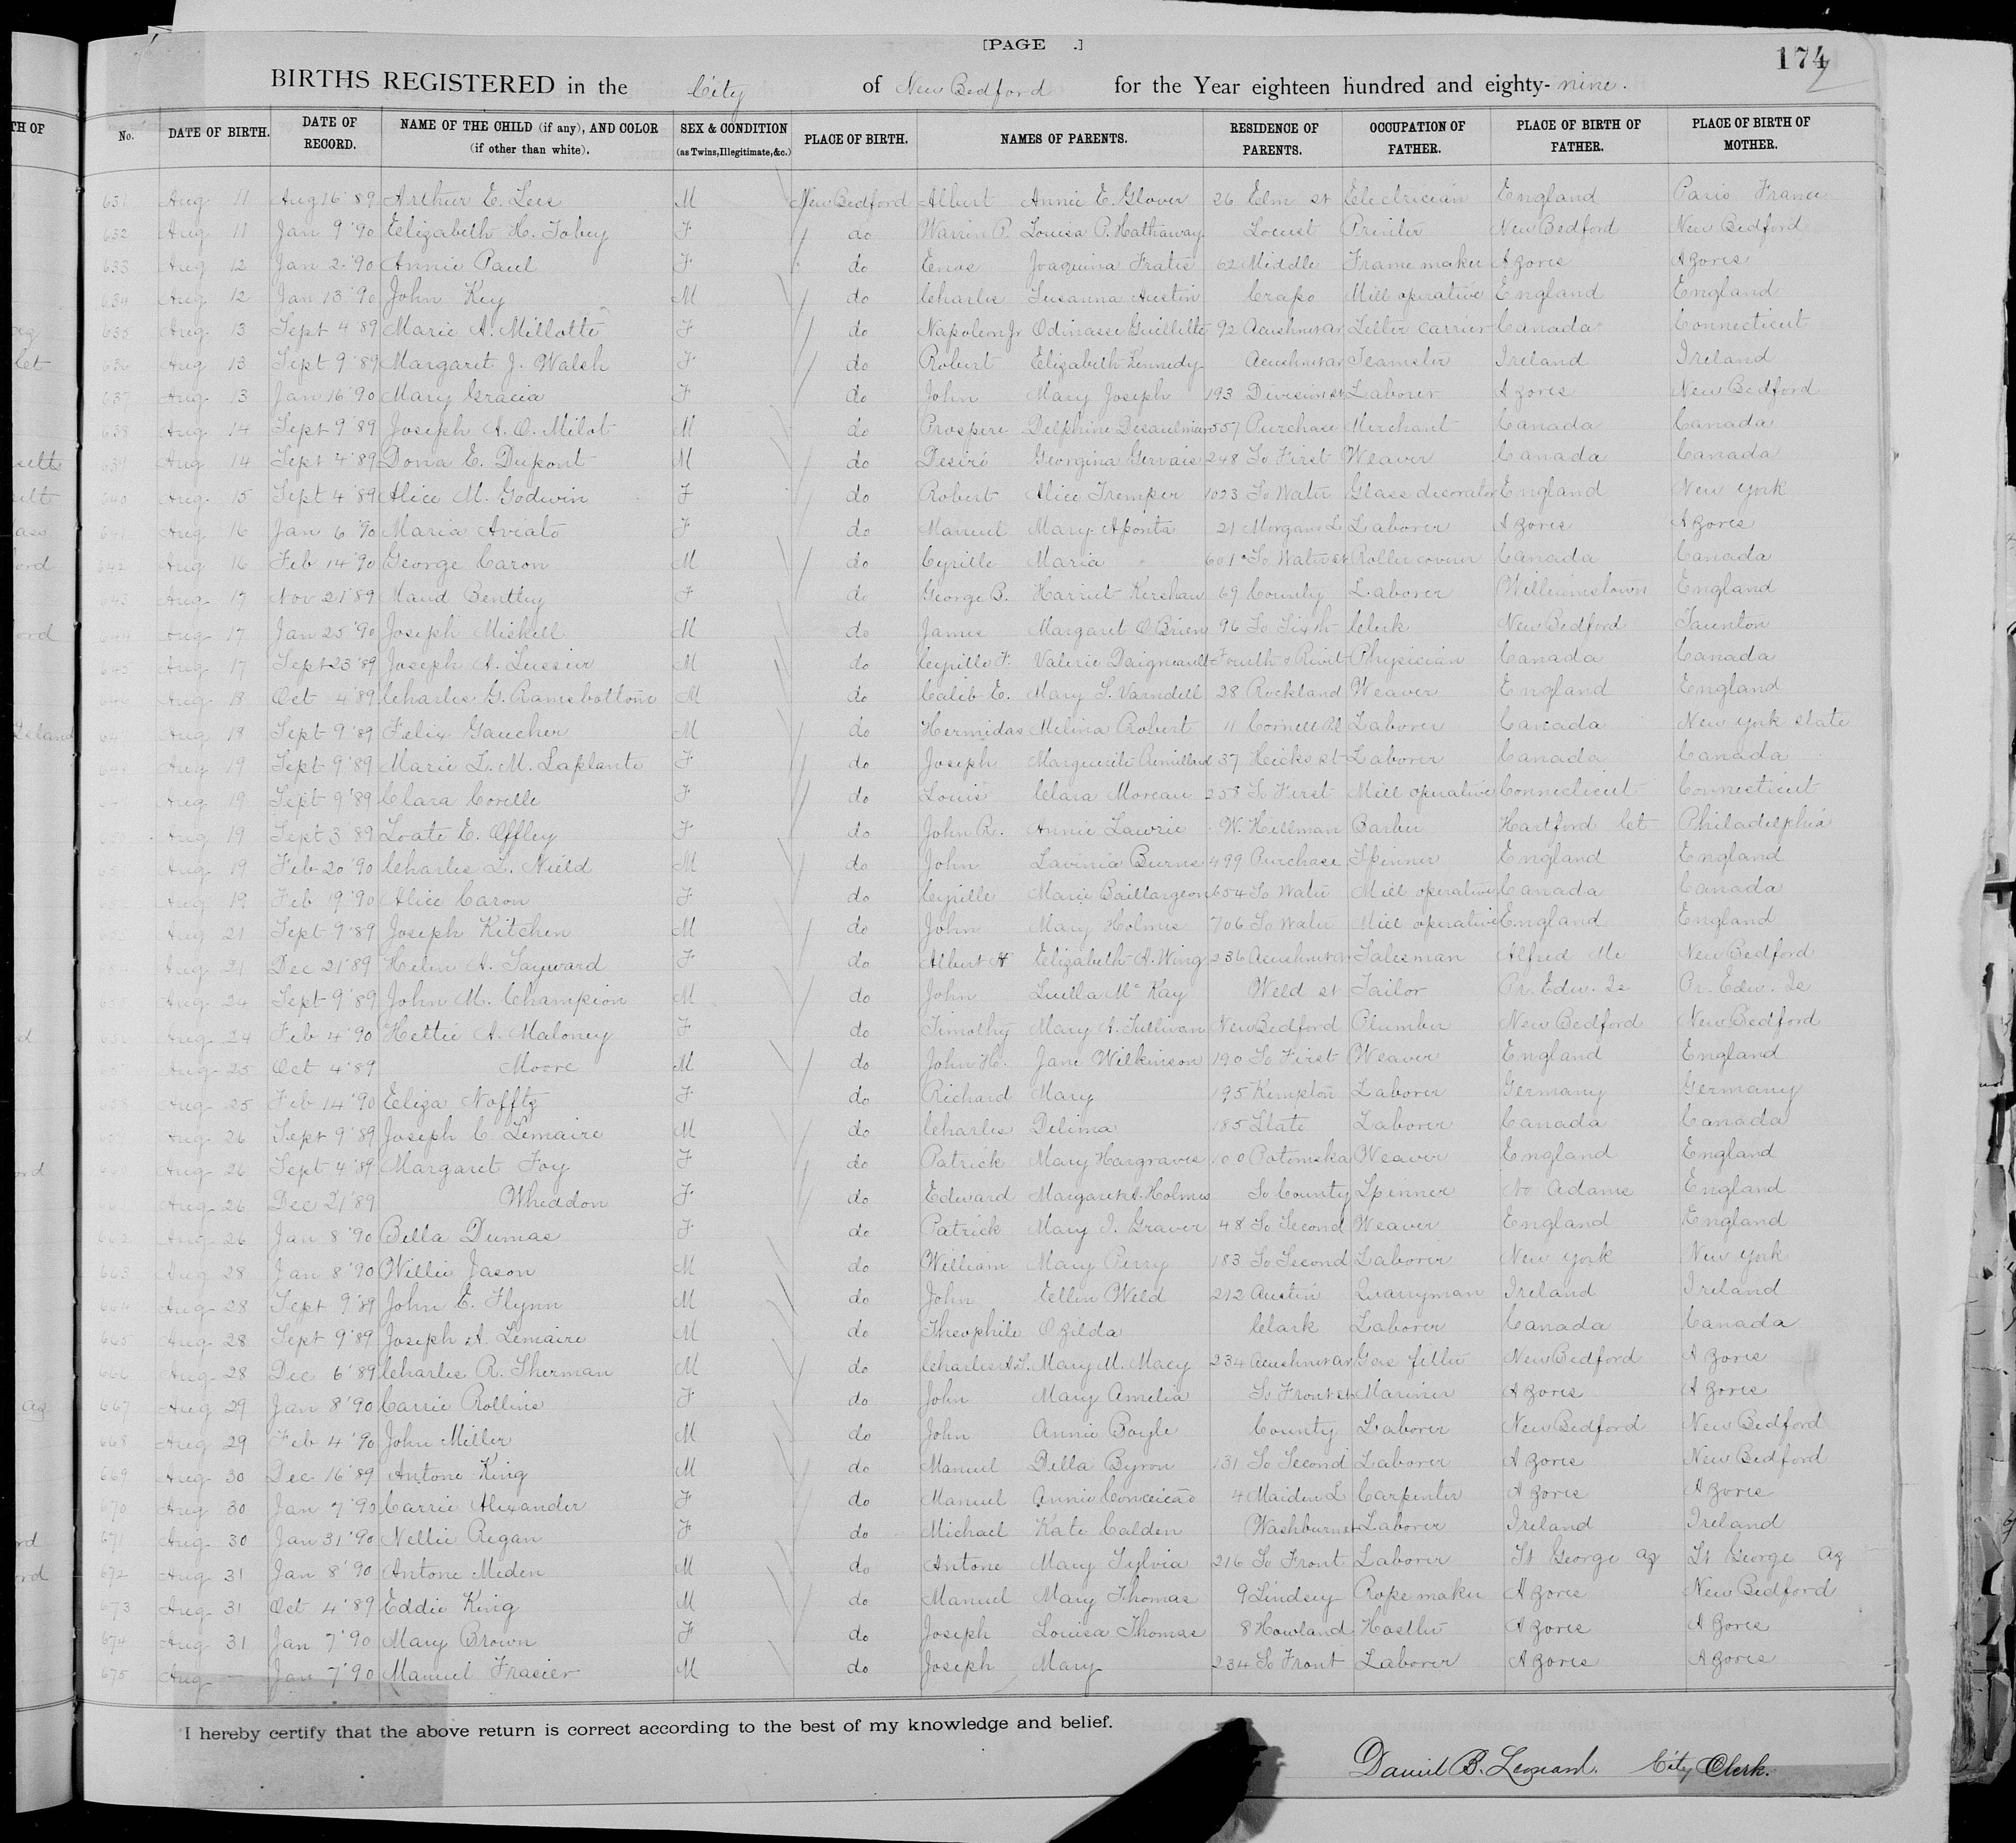 [PAGE .]
174
BIRTHS REGISTERED in the City of New Bedford for the Year eighteen hundred and eighty-nine.
No. DATE OF BIRTH. DATE OF RECORD. NAME OF THE CHILD (if any), AND COLOR (if other than white). SEX & CONDITION (as Twins, Illegitimate, &c.) PLACE OF BIRTH. NAMES OF PARENTS. RESIDENCE OF PARENTS. OCCUPATION OF FATHER. PLACE OF BIRTH OF FATHER. PLACE OF BIRTH OF MOTHER.
631 Aug 11 Aug 16 '89 Arthur E. Lees M New Bedford Albert Annie E. Glover 26 Elm st Electrician England Paris France
632 Aug 11 Jan 9 '90 Elizabeth H. Tobey F do Warren P. Louisa P. Hathaway Locust Printer New Bedford New Bedford
633 Aug 12 Jan 2 '90 Annie Paul F do Enos Joaquina Fratis 62 Middle Frame maker Azores Azores
634 Aug 12 Jan 13 '90 John Key M do Charles Susanna Austin Crapo Mill operative England England
635 Aug 13 Sept 4 '89 Marie A. Millotte F do Napoleon Jr Odinasse Guillette 92 Acushnet av Letter carrier Canada Connecticut
636 Aug 13 Sept 9 '89 Margaret J. Walsh F do Robert Elizabeth Kennedy Acushnet av Teamster Ireland Ireland
637 Aug 13 Jan 16 '90 Mary Gracia F do John Mary Joseph 193 Division st Laborer Azores New Bedford
638 Aug 14 Sept 9 '89 Joseph A. O. Milot M do Prospere Delphine Desaulniers 557 Purchase Merchant Canada Canada
639 Aug 14 Sept 4 '89 Dona E. Dupont M do Desiré Georgina Gervais 248 So First Weaver Canada Canada
640 Aug 15 Sept 4 '89 Alice M. Godwin F do Robert Alice Tremper 1023 So Water Glass decorator England New York
641 Aug 16 Jan 6 '90 Maria Aviato F do Manuel Mary Aponta 21 Morgans L Laborer Azores Azores
642 Aug 16 Feb 14 '90 George Caron M do Cyrille Maria " 601 So Water st Roller coverer Canada Canada
643 Aug 17 Nov 21 '89 Maud Bentley F do George B. Harriet Kershaw 69 County Laborer Williamstown England
644 Aug 17 Jan 25 '90 Joseph Miskell M do James Margaret O'Brien 96 So Sixth Clerk New Bedford Taunton
645 Aug 17 Sept 23 '89 Joseph A. Lussier M do Cyrille F. Valerie Daigneault Fourth & Rivet Physician Canada Canada
646 Aug 18 Oct 4 '89 Charles G. Ramsbottom M do Caleb E. Mary S. Varndell 28 Rockland Weaver England England
647 Aug 18 Sept 9 '89 Felix Gaucher M do Hermidas Melina Robert 11 Cornell Pl Laborer Canada New York state
648 Aug 19 Sept 9 '89 Marie L. M. Laplante F do Joseph Marguerite 37 Hicks st Laborer Canada Canada
649 Aug 19 Sept 9 '89 Clara Corelle F do Louis Clara Moreau 258 So First Mill operative Connecticut Connecticut
650 Aug 19 Sept 3 89 Loate E. Offley F do John R. Annie Lawrie W. Hillman Barber Hartford Cct Philadelphia
651 Aug 19 Feb 20 '90 Charles L. Nield M do John Lavinia Burns 499 Purchase Spinner England England
Aug 19 Feb 19 '90 Alice Caron F do Cyrille Marie Baillargeon 654 So Water Mill operative Canada Canada
653 Aug 21 Sept 9 '89 Joseph Kitchen M do John Mary Holmes 706 So Water Mill operative England England
Aug 21 Dec 21 '89 Helen A. Sayward F do Albert H Elizabeth A. Wing 236 Acushnet av Salesman Alfred Me New Bedford
655 Aug 24 Sept 9 '89 John M. Champion M do John Luella McKay Weld st Tailor Pr. Edw. Is Pr. Edw. Is
656 Aug 24 Feb 4 '90 Hettie A. Maloney F do Timothy Mary A. Sullivan New Bedford Plumber New Bedford New Bedford
Aug 25 Oct 4 '89 Moore M do John H. Jane Wilkinson 190 So First Weaver England England
658 Aug 25 Feb 14 '90 Eliza Nofftz F do Richard Mary 195 Kempton Laborer Germany Germany
659 Aug 26 Sept 9 '89 Joseph C. Lemaire M do Charles Delima 185 State Laborer Canada Canada
660 Aug 26 Sept 4 '89 Margaret Foy F do Patrick Mary Hargraves 100 Potomska Weaver England England
661 Aug 26 Dec 21 '89 Wheddon F do Edward Margaret A. Holmes So County Spinner No Adams England
662 Aug 26 Jan 8 '90 Bella Dumas F do Patrick Mary I. Graver 48 So Second Weaver England England
663 Aug 28 Jan 8 '90 Willie Jason M do William Mary Perry 183 So Second Laborer New York New York
664 Aug 28 Sept 9 '89 John E. Flynn M do John Ellen Weld 212 Austin Quarryman Ireland Ireland
665 Aug 28 Sept 9 '89 Joseph A. Lemaire M do Theophile Ozilda Clark Laborer Canada Canada
666 Aug 28 Dec 6 '89 Charles R. Sherman M do Charles A. S. Mary M. Macy 234 Acushnet av Gas fitter New Bedford Azores
667 Aug 29 Jan 8 '90 Carrie Rollins F do John Mary Amelia So Front st Mariner Azores Azores
668 Aug 29 Feb 4 '90 John Miller M do John Annie Boyle County Laborer New Bedford New Bedford
669 Aug 30 Dec 16 '89 Antone King M do Manuel Della Byron 131 So Second Laborer Azores New Bedford
670 Aug 30 Jan 7 '90 Carrie Alexander F do Manuel Annie Conceicão 4 Maiden L Carpenter Azores Azores
671 Aug 30 Jan 31 '90 Nellie Regan F do Michael Kate Calden Washburn st Laborer Ireland Ireland
672 Aug 31 Jan 8 '90 Antone Meden M do Antone Mary Sylvia 216 So Front Laborer St George Az St George Az
673 Aug 31 Oct 4 '89 Eddie King M do Manuel Mary Thomas 9 Lindsey Rope maker Azores New Bedford
674 Aug 31 Jan 7 '90 Mary Brown F do Joseph Louisa Thomas 8 Howland Hostler Azores Azores
675 Aug — Jan 7 '90 Manuel Frasier M do Joseph Mary 234 So Front Laborer Azores Azores
I hereby certify that the above return is correct according to the best of my knowledge and belief.
Daniel B. Leonard. City Clerk.